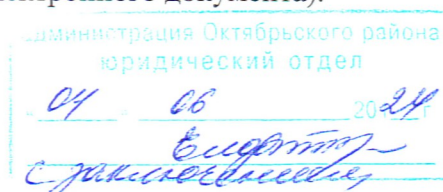 документа).
администрация Октябрьского района
юридический отдел
" 04 " 06 2024 г
с заключением